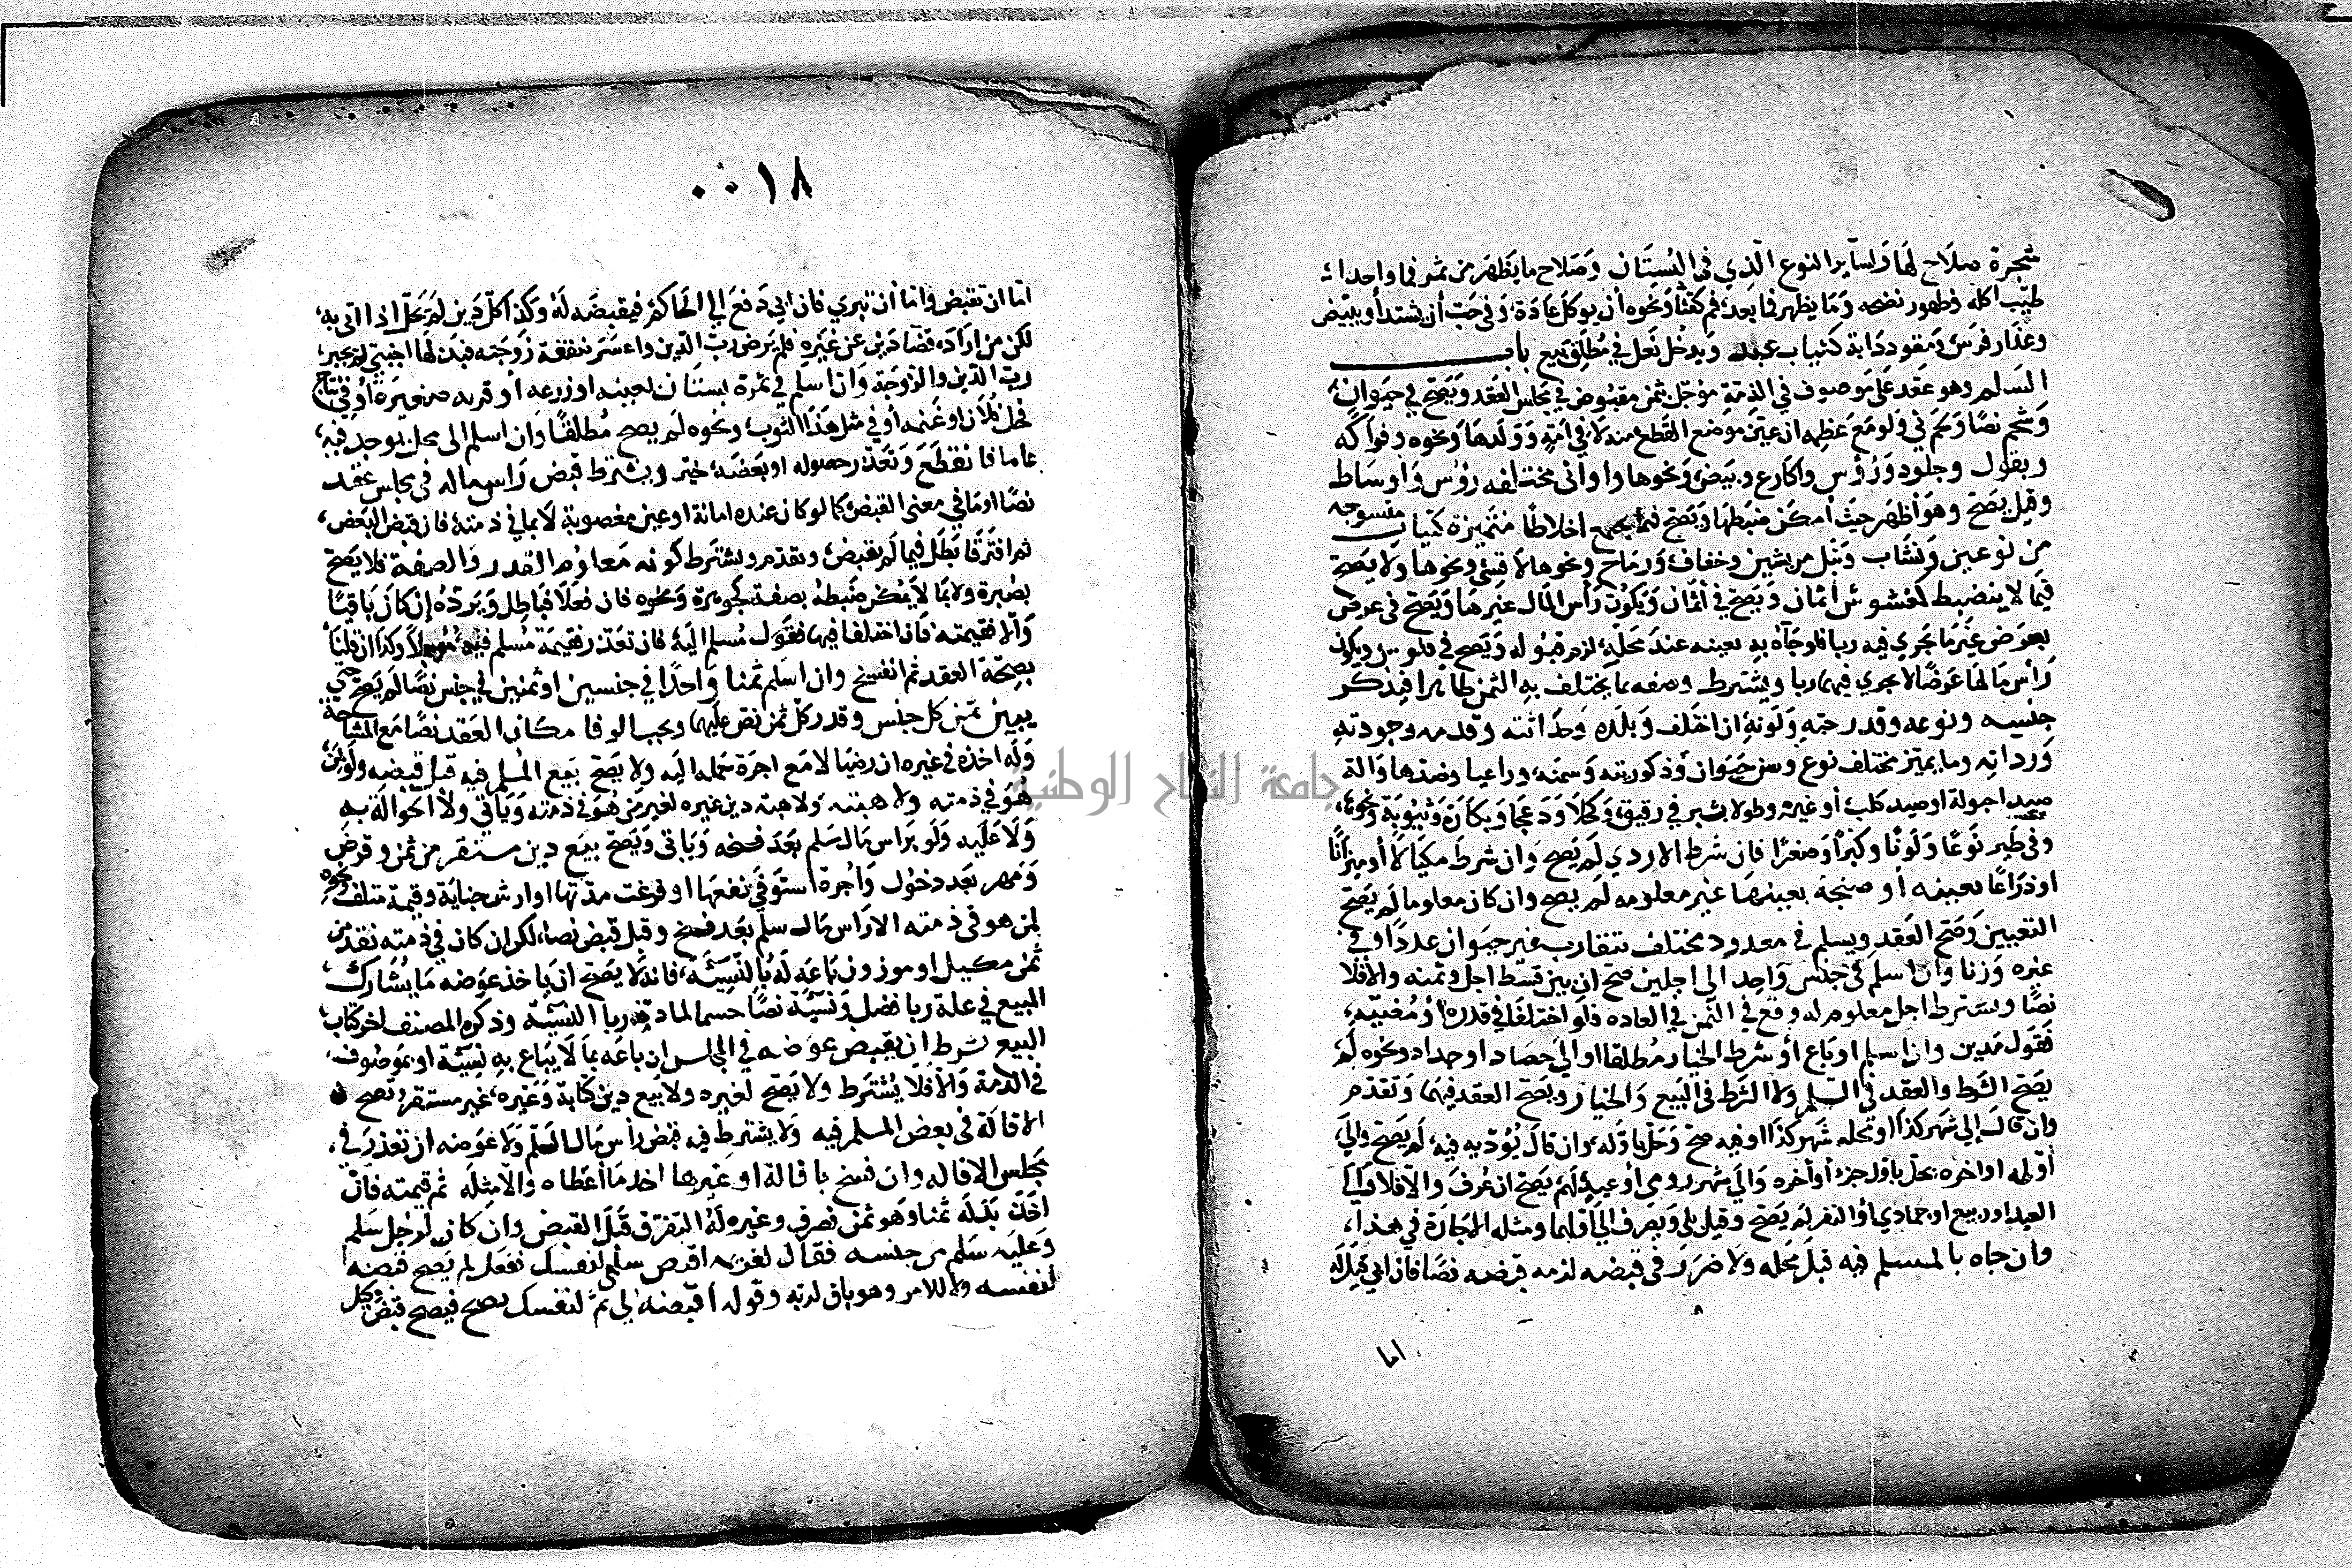 شجرة صلاح لها ولساير النوع الذي في البستان وصلاح ما يظهر من ثمر فما واحدا
طيب اكله وظهور نضجه وما يظهر فما بعد فم كقثا ونحوه أن يوكل عادة وفي حب أن يشتد أو يبيض
وعذار فرس ومقود دابة كثياب عبد ويدخل نعل في مطلق بيع باب
السلم وهو عقد على موصوف في الذمة مؤجل بثمن مقبوض في مجلس العقد ويصح في حيوان
وشحم نصا ولحم ني ولو مع عظمه ان عين موضع القطع منه لا في امة وولدها ونحوه وفواكه
وبقول وجلود ورؤس واكارع وبيض ونحوها واواني مختلفه رؤس واوساط
وقيل يصح وهو أظهر حيث أمكن ضبطها ويصح فيما يجمع اخلاطا متميزة كثياب منسوجه
من نوعين ونشاب ونبل مريشين وخفاف ورماح ونحوها لا قسي ونحوها ولا يصح
فيما لا ينضبط كمغشوش أثمان ويصح في أثمان ويكون رأس المال غيرها ويصح في عرض
بعوض غير ما يجري فيه ربا فلو جآه به بعينه عند محله لزم قبوله ويصح في فلوس ويكون
رأس مالها عوضا لا يجري فيهما ربا ويشترط وصفه بما يختلف به الثمن ظاهرا فيذكر
جنسه ونوعه وقدر حبه ولونه ان اختلف وبلده وحداثته وقدمه وجودته
ورداته وما يميز مختلف نوع وسن حيوان وذكوريته وسمنه وراعيا وضدها وآلة
صيد احبولة او صيد كلب أو غيره وطولا بشبر في رقيق وكحلا ودعجا وبكارة وثيوبة ونحوها
وفي طير نوعا ولونا وكبرا وصغرا فان شرط الاردي لم يصح وان شرط مكيالا أو ميزانا
او ذراعا بعينه أو صنجة بعينها غير معلومه لم يصح وان كان معلوما لم يصح
التعيين وصح العقد ويسلم في معدود مختلف يتقارب غير حيوان عددا وفي
غيره وزنا وان اسلم في جنس واحد الى اجلين صح ان بين قسط اجل وثمنه والا فلا
نصا ويشترط اجل معلوم له وقع في الثمن في العاده فلو اختلفا في قدره أو مضيه
فقول مدين وان اسلم او باع أو شرط الخيار مطلقا او الى حصاد او جداد ونحوه لم
يصح الشرط والعقد في السلم ولا الشرط في البيع والخيار ويصح العقد فيهما وتقدم
وان قال إلى شهر كذا او محله شهر كذا او فيه صح وحل باوله وان قال يؤديه فيه لم يصح والى
أوله او اخره يحل باول جزء أو آخره والى شهر رومي أو عيد لهم يصح ان عرف والا فلا والى
العيد او ربيع او جمادي أو النفر لم يصح وقيل بلى ويصرف الى اقلهما ومثله الاجارة في هذا
وان جاه بالمسلم فيه قبل محله ولا ضرر في قبضه لزمه قبضه نصا فان ابى قيل له
اما
٠٠١٨
اما ان تقبض واما أن تبري فان ابى دفع الى الحاكم فيقبضه له وكذا كل دين لم يحل اذا اتى به
لكن من اراد قضا دين عن غيره فلم يرض رب الدين واعسر بنفقة زوجته فبذلها اجنبي لم يجبر
رب الدين والزوجة وان اسلم في ثمرة بستان بعينه او زرعه أو قريه صغيرة او في نتاج
فحل فلان او غنمه أو في مثل هذا الثوب ونحوه لم يصح مطلقا وان اسلم الى محل يوجد فيه
عاما فانقطع وتعذر حصوله او بعضه خير ويشترط قبض راس ماله في مجلس عقد
نصا او ما في معنى القبض كما لو كان عنده امانة او عين مغصوبة لا بما في ذمته فان قبض البعض
ثم افترقا بطل فيما لم يقبض وتقدم ويشترط كونه معلوم القدر والصفة فلا يصح
بصبرة ولا بما لا يمكن ضبطه بصفة كجوهرة ونحوه فان فعلا فباطل ويرده إن كان باقيا
والا فقيمته فان اختلفا فيها فقول مسلم اليه فان تعذر فقيمة مسلم فيه مؤجلا وكذا ان قلنا
بصحة العقد ثم انفسخ وان اسلم ثمنا واحدا في جنسين او ثمنين في جنس نصا لم يصح حتى
يبين ثمن كل جنس وقدر كل ثمن نص عليهما ويجب الوفا مكان العقد نصا مع المشاحة
وله اخذه في غيره ان رضيا لا مع اجرة حمله اليه ولا يصح بيع المسلم فيه قبل قبضه ولو لمن
هو في ذمته ولا هبته ولا هبة دين غيره لغير من هو في ذمته وياتي ولا الحوالة به
ولا عليه ولو براس مال سلم بعد فسخه وياتي ويصح بيع دين مستقر من ثمن وقرض
ومهر بعد دخول واجرة استوفي نفعها او فرغت مدتها وارش جناية وقيمة متلف ونحوه
لمن هو في ذمته الا راس مال سلم بعد فسخ وقبل قبض نصا لكن إن كان في ذمته نقد من
ثمن مكيل او موزون باعه له بالنسيئة فانه لا يصح ان ياخذ عوضه ما يشارك
المبيع في علة ربا فضل ونسيئة نصا حسما لمادة ربا النسيئة وذكره المصنف اخر كتاب
البيع بشرط ان يقبض عوضه في المجلس ان باعه بما لا يباع به نسيئة او بموصوف
في الذمة والا فلا يشترط ولا يصح لغيره ولا بيع دين كتابة وغيره غير مستقر وتصح
الاقالة في بعض المسلم فيه ولا يشترط فيه قبض راس مال السلم ولا عوضه ان تعذر في
مجلس الاقاله وان فسخ باقالة او غيرها اخذ ما أعطاه والا مثله ثم قيمته فان
اخذ بدله ثمنا وهو ثمن فصرف وغيره له التفرق قبل القبض وان كان لرجل سلم
وعليه سلم من جنسه فقال لغريمه اقبض سلمي لنفسك ففعل لم يصح قبضه
لنفسه ولا للامر وهو باق لربه وقوله أقبضه لي ثم لنفسك يصح فيصح قبض وكيل
جامعة النجاح الوطنية